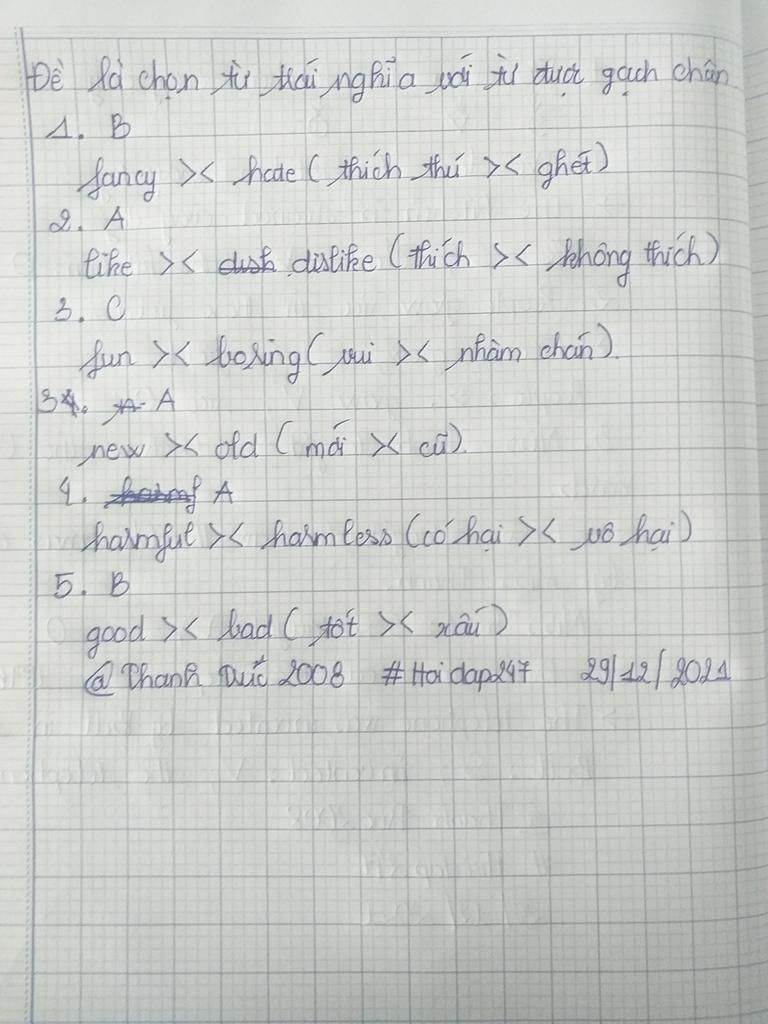 Đề là chọn từ trái nghĩa với từ được gạch chân
1. B
fancy >< hate (thích thú >< ghét)
2. A
like >< dislike (thích >< không thích)
3. C
fun >< boring (vui >< nhàm chán).
34. A
new >< old (mới >< cũ).
4. A
harmful >< harmless (có hại >< vô hại)
5. B
good >< bad (tốt >< xấu)
@Thanh Đức 2008 #Hoidap247 29/12/2021